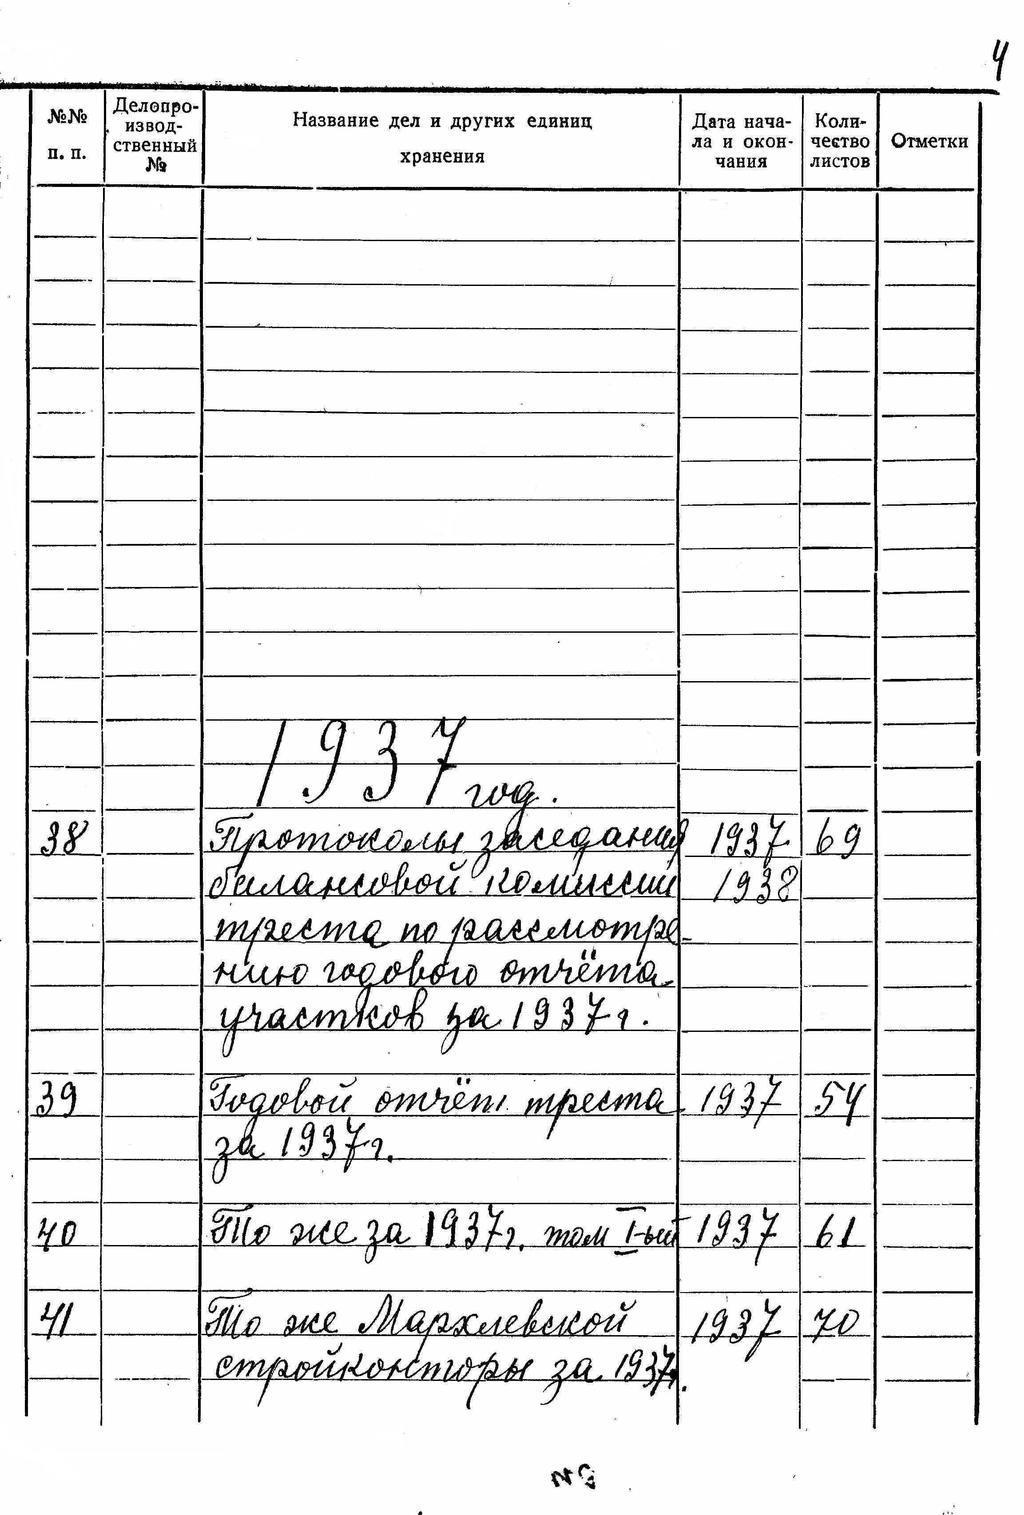 4
№№ п. п. | Делопро-извод-ственный № | Название дел и других единиц хранения | Дата нача-ла и окон-чания | Коли-чество листов | Отметки
1937 год.
38 Протоколы заседания 1937 69
балансовой комиссии 1938
треста по рассмотре-
нию годового отчёта
участков за 1937 г.
39 Годовой отчёт треста 1937 54
за 1937 г.
40 То же за 1937 г. том I-ый 1937 61
41 То же Мархлевской 1937 70
стройконторы за 1937 г.